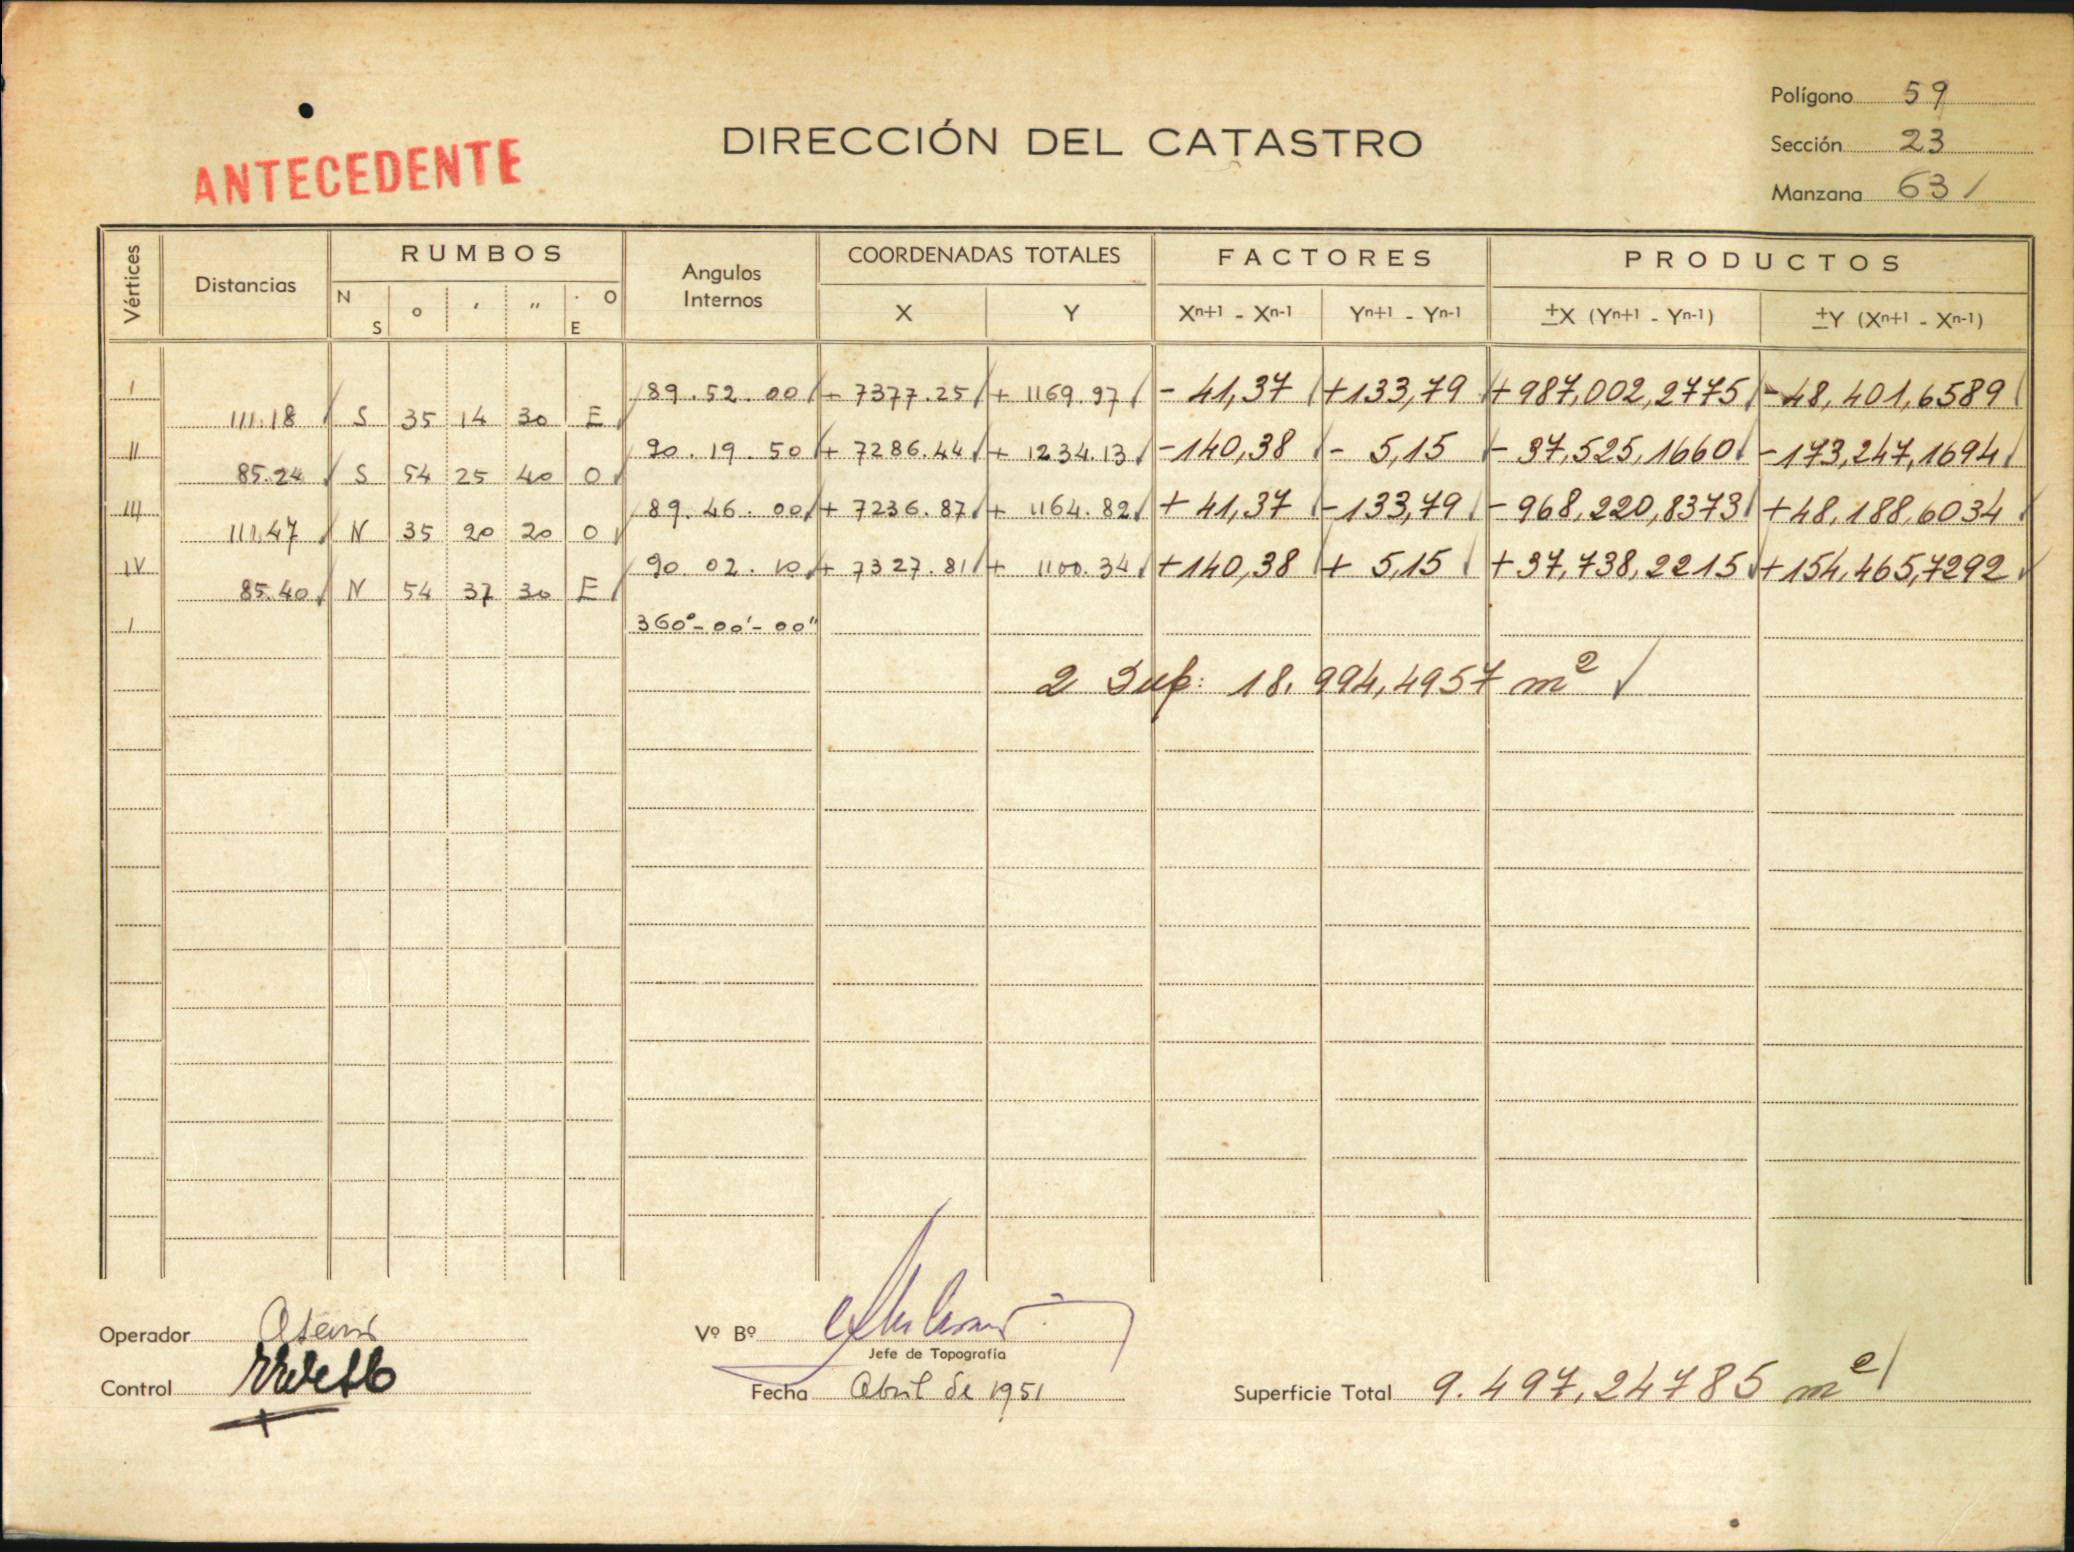 Polígono 59
DIRECCIÓN DEL CATASTRO
Sección 23
ANTECEDENTE
Manzana 63 /
Vértices Distancias RUMBOS Angulos Internos COORDENADAS TOTALES FACTORES PRODUCTOS
N S o ʼ ʼʼ O E X Y Xn+1 - Xn-1 Yn+1 - Yn-1 ±X (Yn+1 - Yn-1) ±Y (Xn+1 - Xn-1)
I 89.52.00 + 7377.25 + 1169.97 - 41,37 +133,79 +987,002,2775 -48,401,6589
111.18 S 35 14 30 E
II 90.19.50 + 7286.44 + 1234.13 -140,38 - 5,15 - 37,525,1660 -173,247,1694
85.24 S 54 25 40 O
III 89.46.00 + 7236.87 + 1164.82 + 41,37 -133,79 - 968,220,8373 +48,188,6034
111.47 N 35 20 20 O
IV 90.02.10 + 7327.81 + 1100.34 +140,38 + 5,15 +37,738,2215 +154,465,7292
85.40 N 54 37 30 E
I 360°-00'-00"
2 Sup: 18.994,4957 m2
Operador
Vº Bº
Jefe de Topografía
Control
Fecha Abril de 1951
Superficie Total 9.497,24785 m2